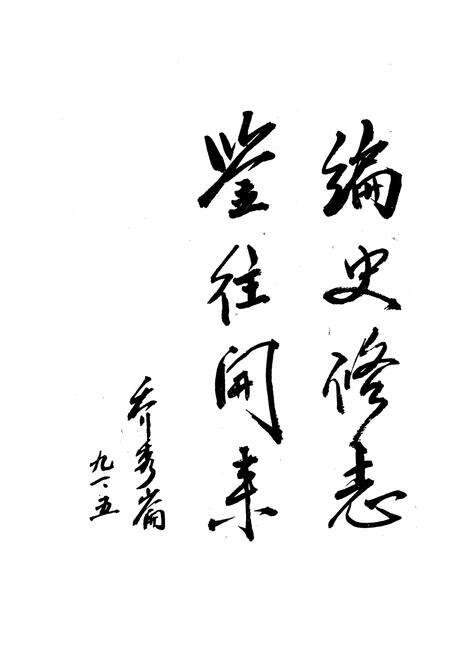 编史修志
鉴往开来
乔秀崙
九一、五